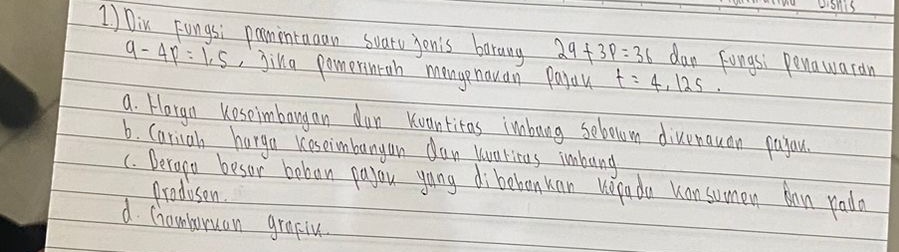 Bisnis
1.) Dik Fungsi permintaaan suatu jenis barang 2q + 3p = 36 dan fungsi penawaran
q - 4p = 1,5, jika pemerintah mengenakan pajak t = 4,125.
a. Harga keseimbangan dan kuantitas imbang sebelum dikenakan pajak.
b. Carilah harga keseimbangan dan kuatitas imbang
c. Berapa besar beban pajak yang dibebankan kepada konsumen dan pada
produsen.
d. Gambarkan grafik.